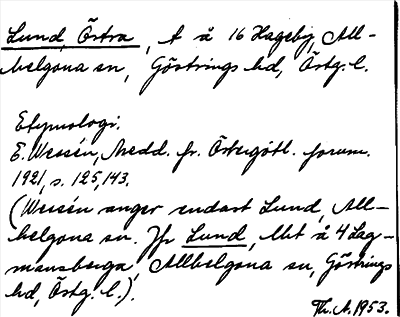 Lund, Östra, t å 16 Hageby, All-
helgona sn, Göstrings hd, Östg. l.
Etymologi.
E. Wessén, Medd. fr. Östergötl. fornm.
1921, s. 125, 143.
(Wessén anger endast Lund, All-
helgona sn. Jfr Lund, lht å 4 Lag-
mansberga, Allhelgona sn, Göstrings
hd, Östg. l.).
Th. A. 1953.